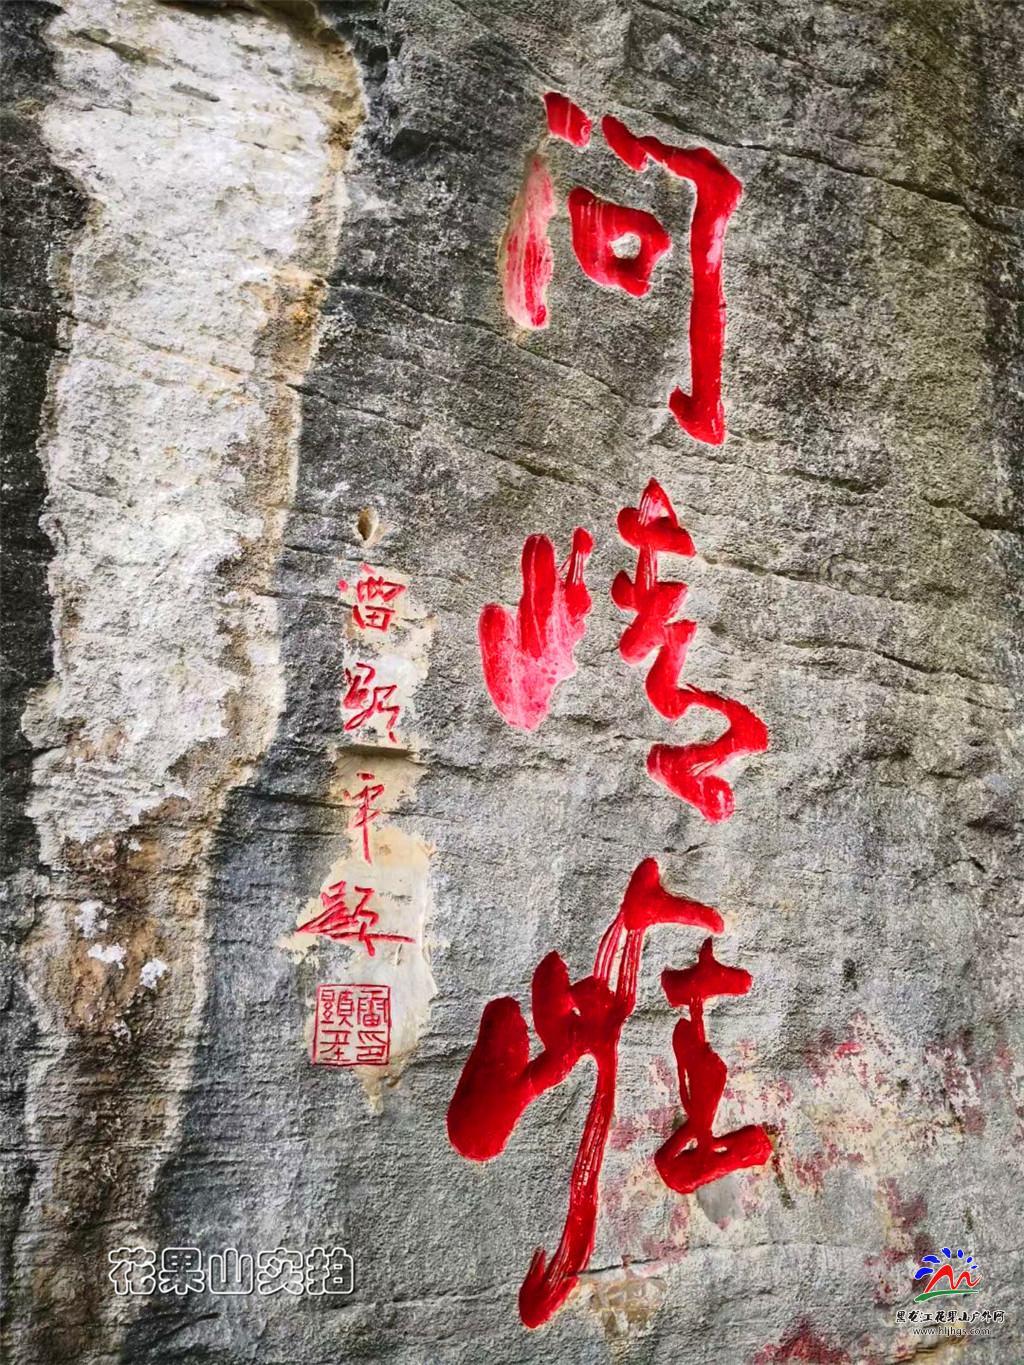 问情崖
雷顯平题
花果山实拍
黑龙江花果山户外网
www.hljhgs.com